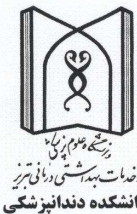 دانشگاه علوم پزشکی و
خدمات بهداشتی درمانی تبریز
دانشکده دندانپزشکی